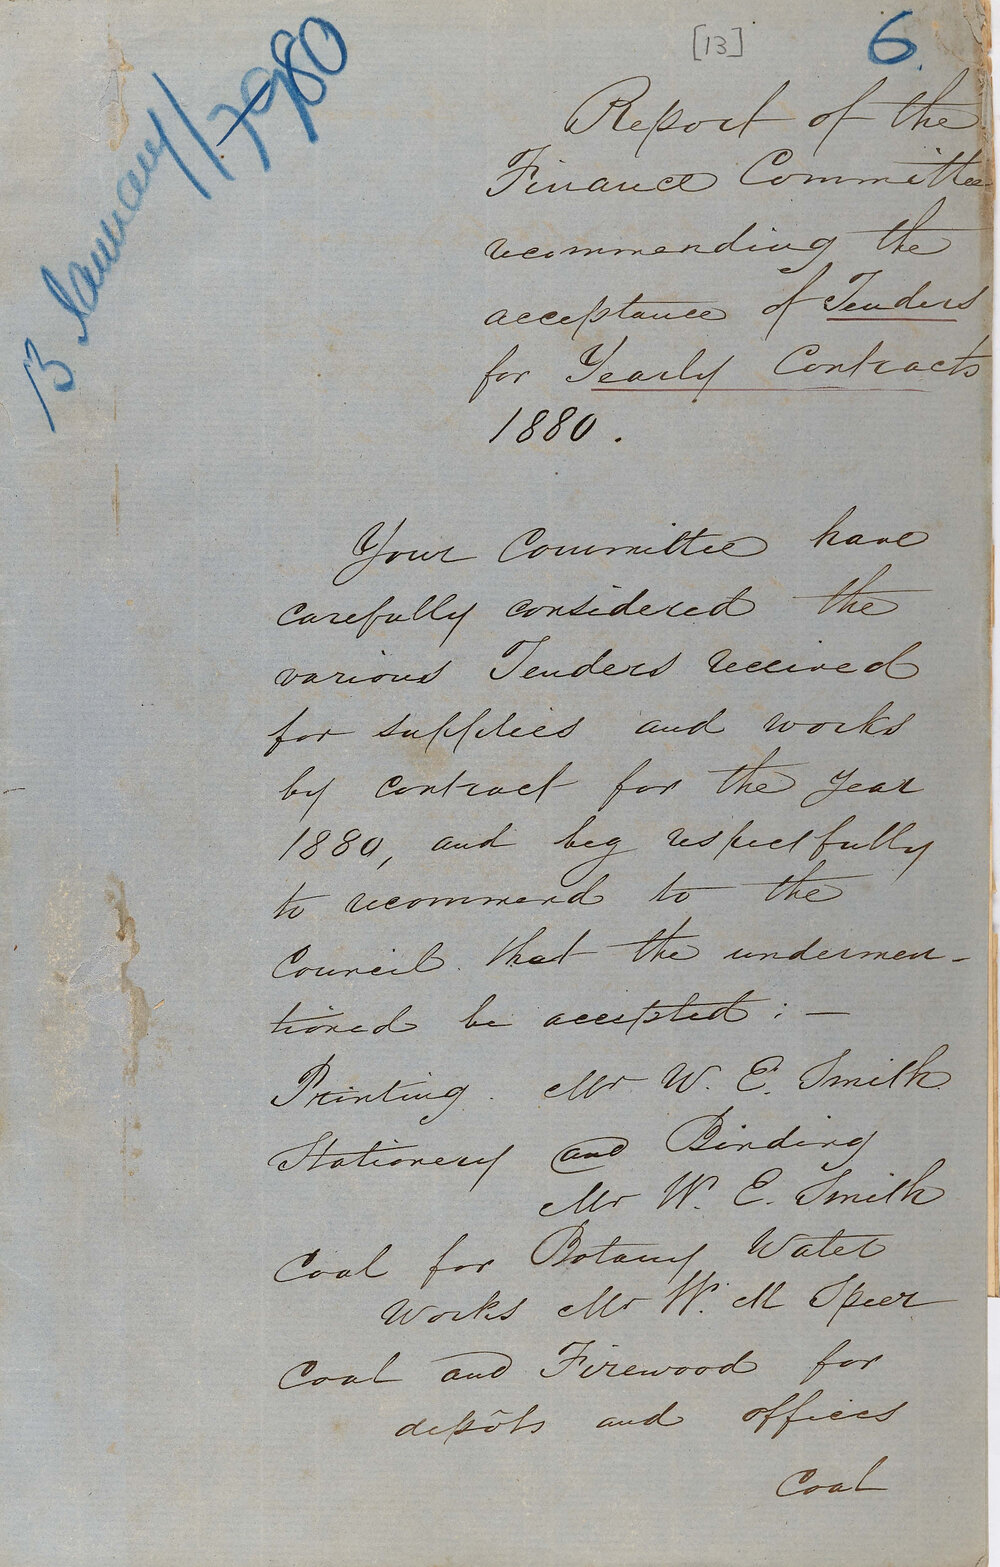 [13]
6.
13 January/1980
Report of the
Finance Committee
recommending the
acceptance of Tenders
for Yearly Contracts
1880.
Your Committee have
carefully considered the
various Tenders received
for supplies and works
by contract for the year
1880, and beg respectfully
to recommend to the
Council that the undermen-
tioned be accepted: —
Printing. Mr W. E. Smith
Stationery and Binding
Mr W. E. Smith
Coal for Botany Water
Works Mr W. M Speer
Coal and Firewood for
depôts and offices
Coal